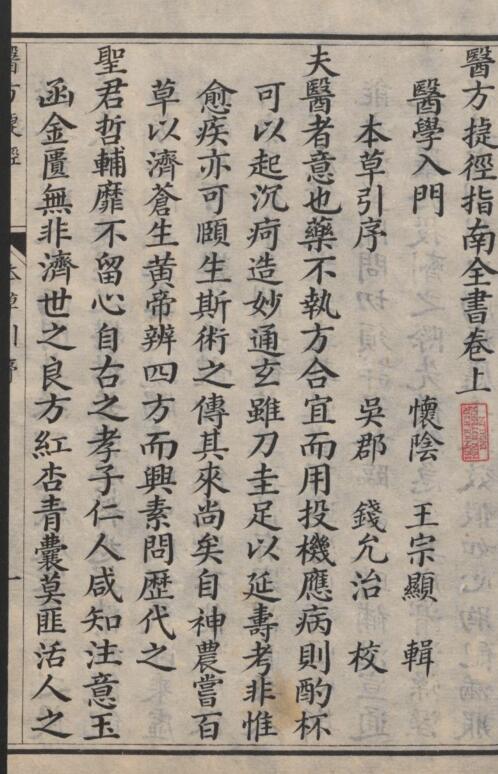 醫方捷徑指南全書卷上
醫學入門 懷陰 王宗顯 輯
本草引序 吳郡 錢允治 校
夫醫者意也藥不執方合宜而用投機應病則酌杯
可以起沉疴造妙通玄雖刀圭足以延壽考非惟
愈疾亦可頤生斯術之傳其來尚矣自神農嘗百
草以濟蒼生黃帝辨四方而興素問歷代之
聖君哲輔靡不留心自古之孝子仁人咸知注意玉
函金匱無非濟世之良方紅杏青囊莫匪活人之
醫方捷徑
本草引序
一